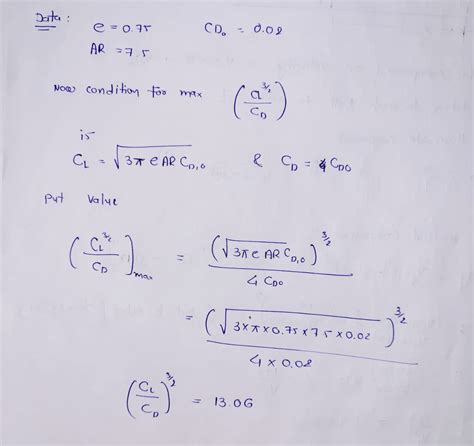 Data :
e = 0.75 CD₀ = 0.02
AR = 7.5
Now condition for max (a^3/2 / C_D)
is
C_L = √3π e AR C_D,0 & C_D = 4 C_D0
Put value
(C_L^3/2 / C_D)max = (√3π e AR C_D,0)^3/2 / 4 C_D0
= (√3×π×0.75×7.5×0.02)^3/2 / 4 × 0.02
(C_L / C_D)^3/2 = 13.06